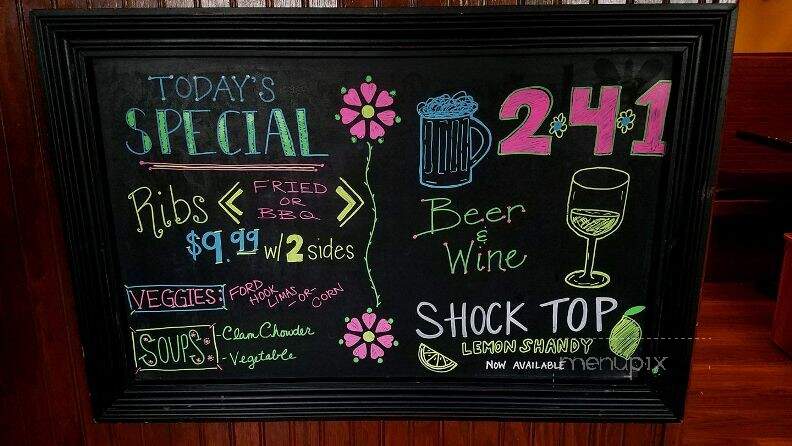 TODAY'S
SPECIAL
Ribs < FRIED
OR
BBQ >
$9.99 w/2 sides
VEGGIES: FORD
HOOK
LIMAS -OR-
CORN
SOUPS: -Clam Chowder
-Vegetable
2·4·1
Beer
&
Wine
SHOCK TOP
LEMON SHANDY
NOW AVAILABLE
menupix